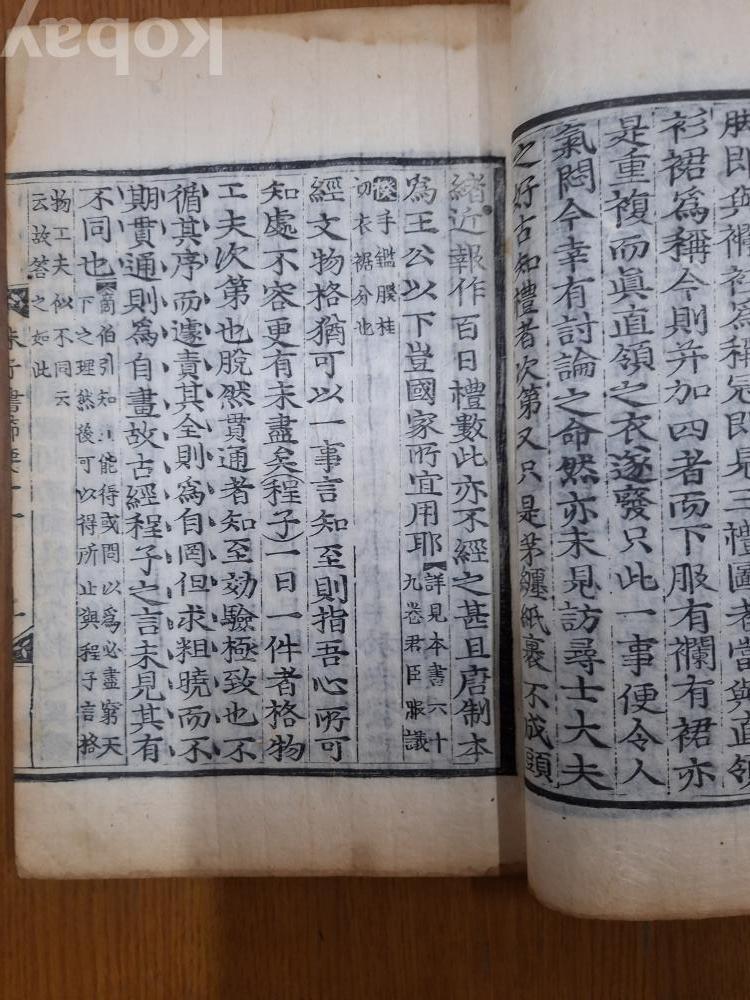 脚即與襴衫爲稱冠即見三禮圖者當與直領
衫裙爲稱今則并加四者而下服有襴有裙亦
是重複而眞直領之衣遂發只此一事便令人
氣悶今幸有討論之命然亦未見訪尋士大夫
之好古知禮者次第又只是茅纏紙裹不成頭
緒近報作百日禮數此亦不經之甚且唐制本
爲王公以下豈國家所宜用耶【詳見本書六十
九卷君臣服議
手鑑睽桂
切衣裾分也
經文物格猶可以一事言知至則指吾心所可
知處不容更有未盡矣(程子)一日一件者格物
工夫次第也脫然貫通者知至効驗極致也不
循其序而遽責其全則爲自罔但求粗曉而不
期貫通則爲自畫故古經程子之言未見其有
不同也【齊伯引知止能得或問以爲必盡窮天
下之理然後可以得所止與程子言格
物工夫似不同云
云故答之如此
朱子書節要十一
kobay